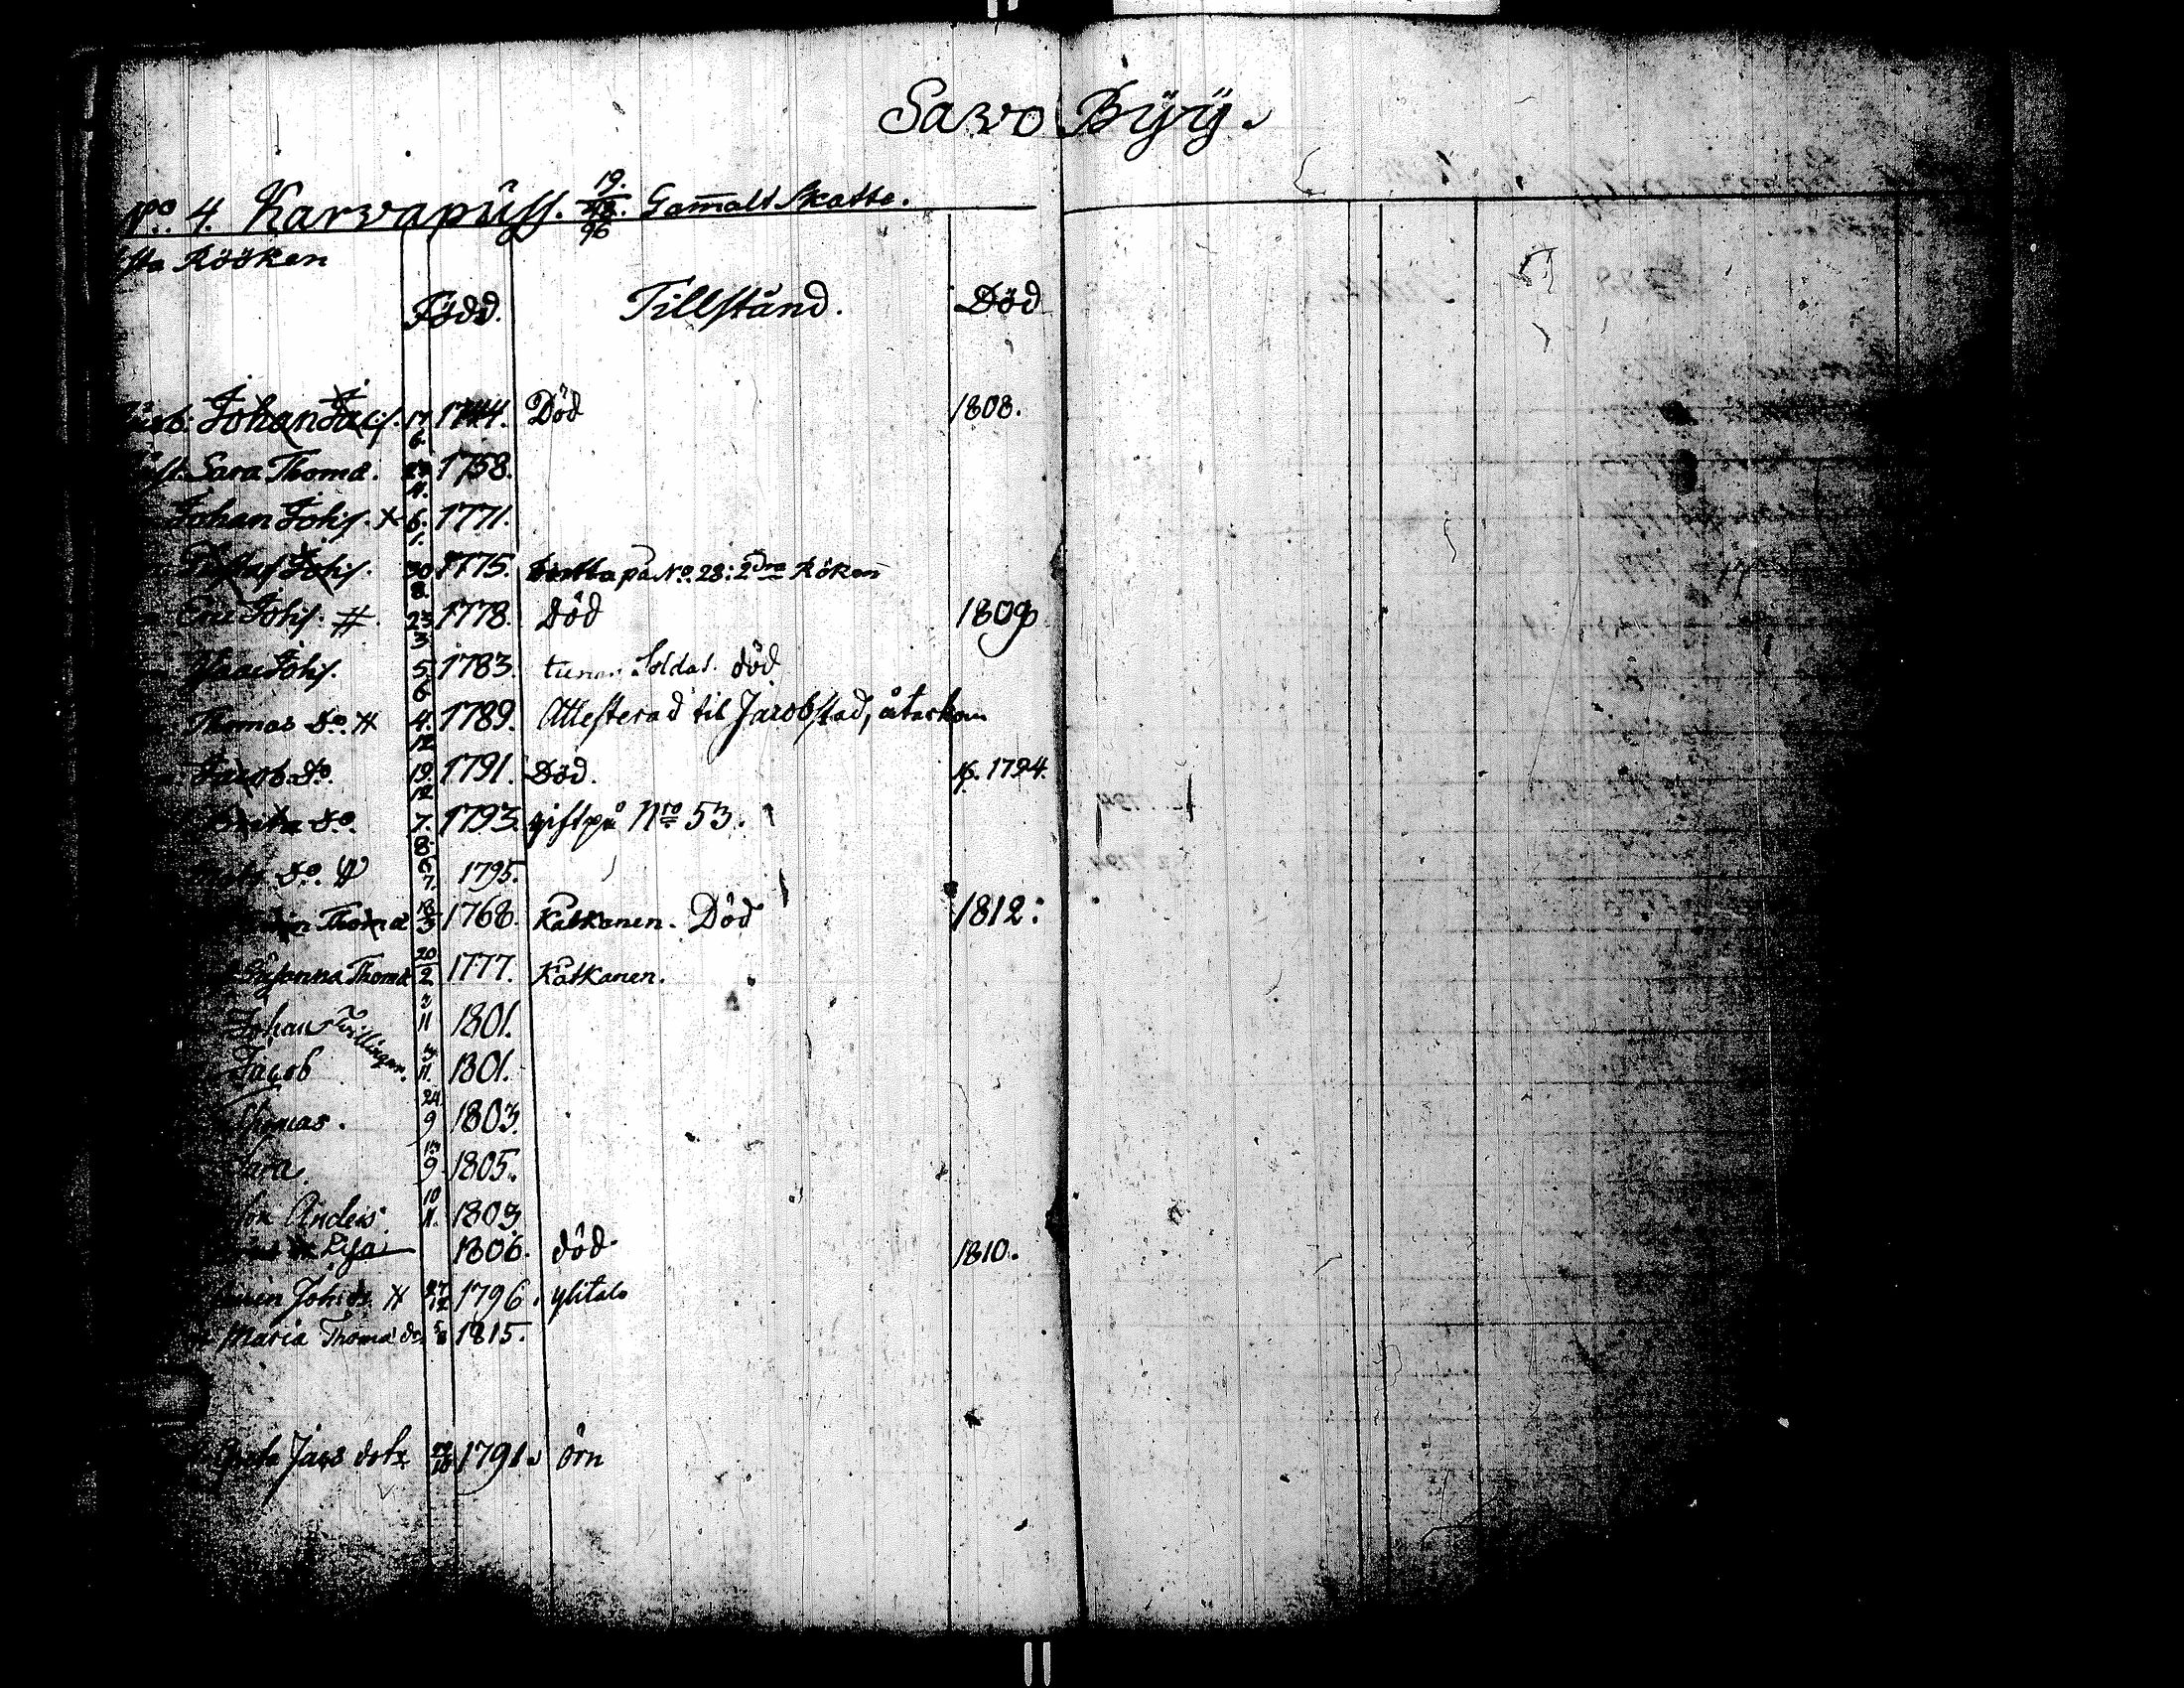 Sawo Byÿ.
No. 4. Karvapuss. 19. 96 Gamalt Skatte.
sta Rööken
Född. Tillstånd. Död
Johan Jac:s. 17 6. 1744. Död 1808.
Sara Thoma. 11. 1758.
Johan Joh:s. X 6. 1. 1771.
Gustaf Joh:s. 30 8. 1775. på No. 28: 2dra Röken
Eric Joh:s. # 23 3 1778. död 1809
Isaac Joh:s. 5 6 1783. Soldat. död
Thomas Do. # 4. 12 1789. Attesterad til Jacobstad, återkom
Jacob Do. 19. 12 1791. Död. 1794.
Greta Do. 7. 8. 1793. gift på Nro 53.
Do. 6 7. 1795.
Thoma 18 3 1768. Katkanen. Död 1812:
Susanna Thoma 20 2 1777. Katkanen.
Johan Tvillingar. 11 1801.
Jacob 11. 1801.
Thomas. 24 9 1803.
13 9 1805.
Anders 10 11. 1809
Lisa 1806. död 1810.
Joh: dr. # 27 12 1796. ylitalo
Maria Thoma dr 1815.
Greta Jacs dotr 1791. örn